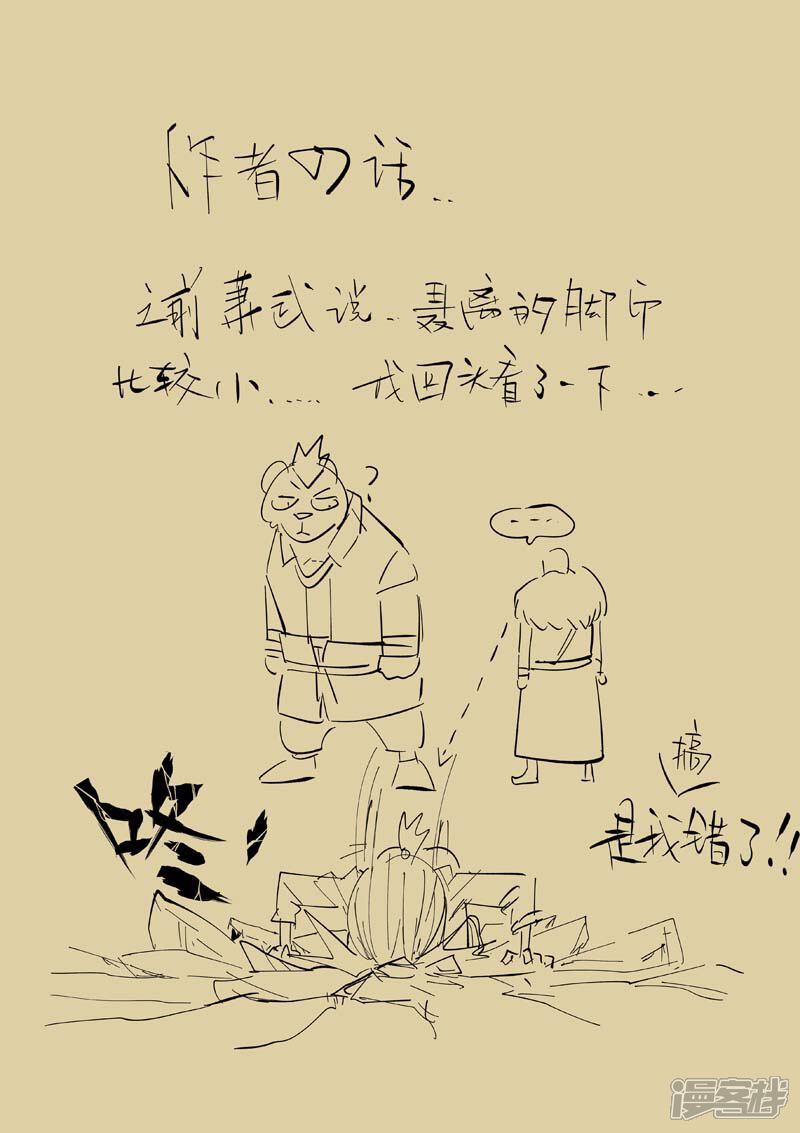 作者の话..
之前 说..聂离的脚印
比较小...... 我回头看了一下...
?
....
咚!
搞
是我错了!!
漫客栈